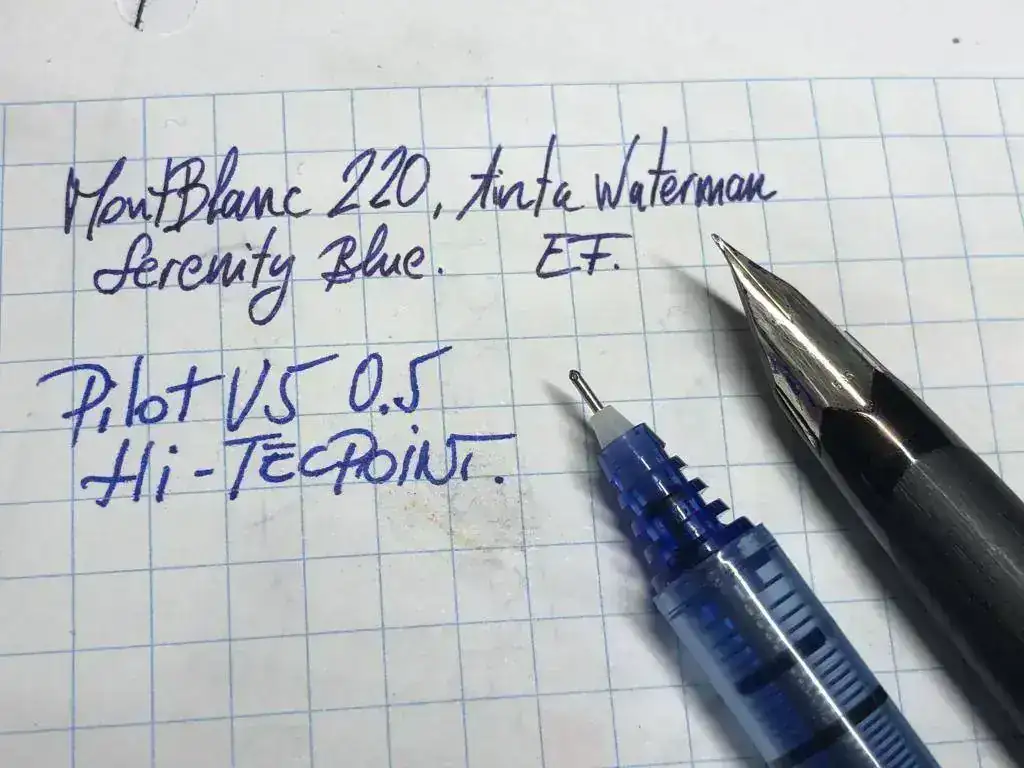 MontBlanc 220, tinta Waterman
Serenity Blue. EF.
Pilot V5 0.5
Hi-TECPOINT.